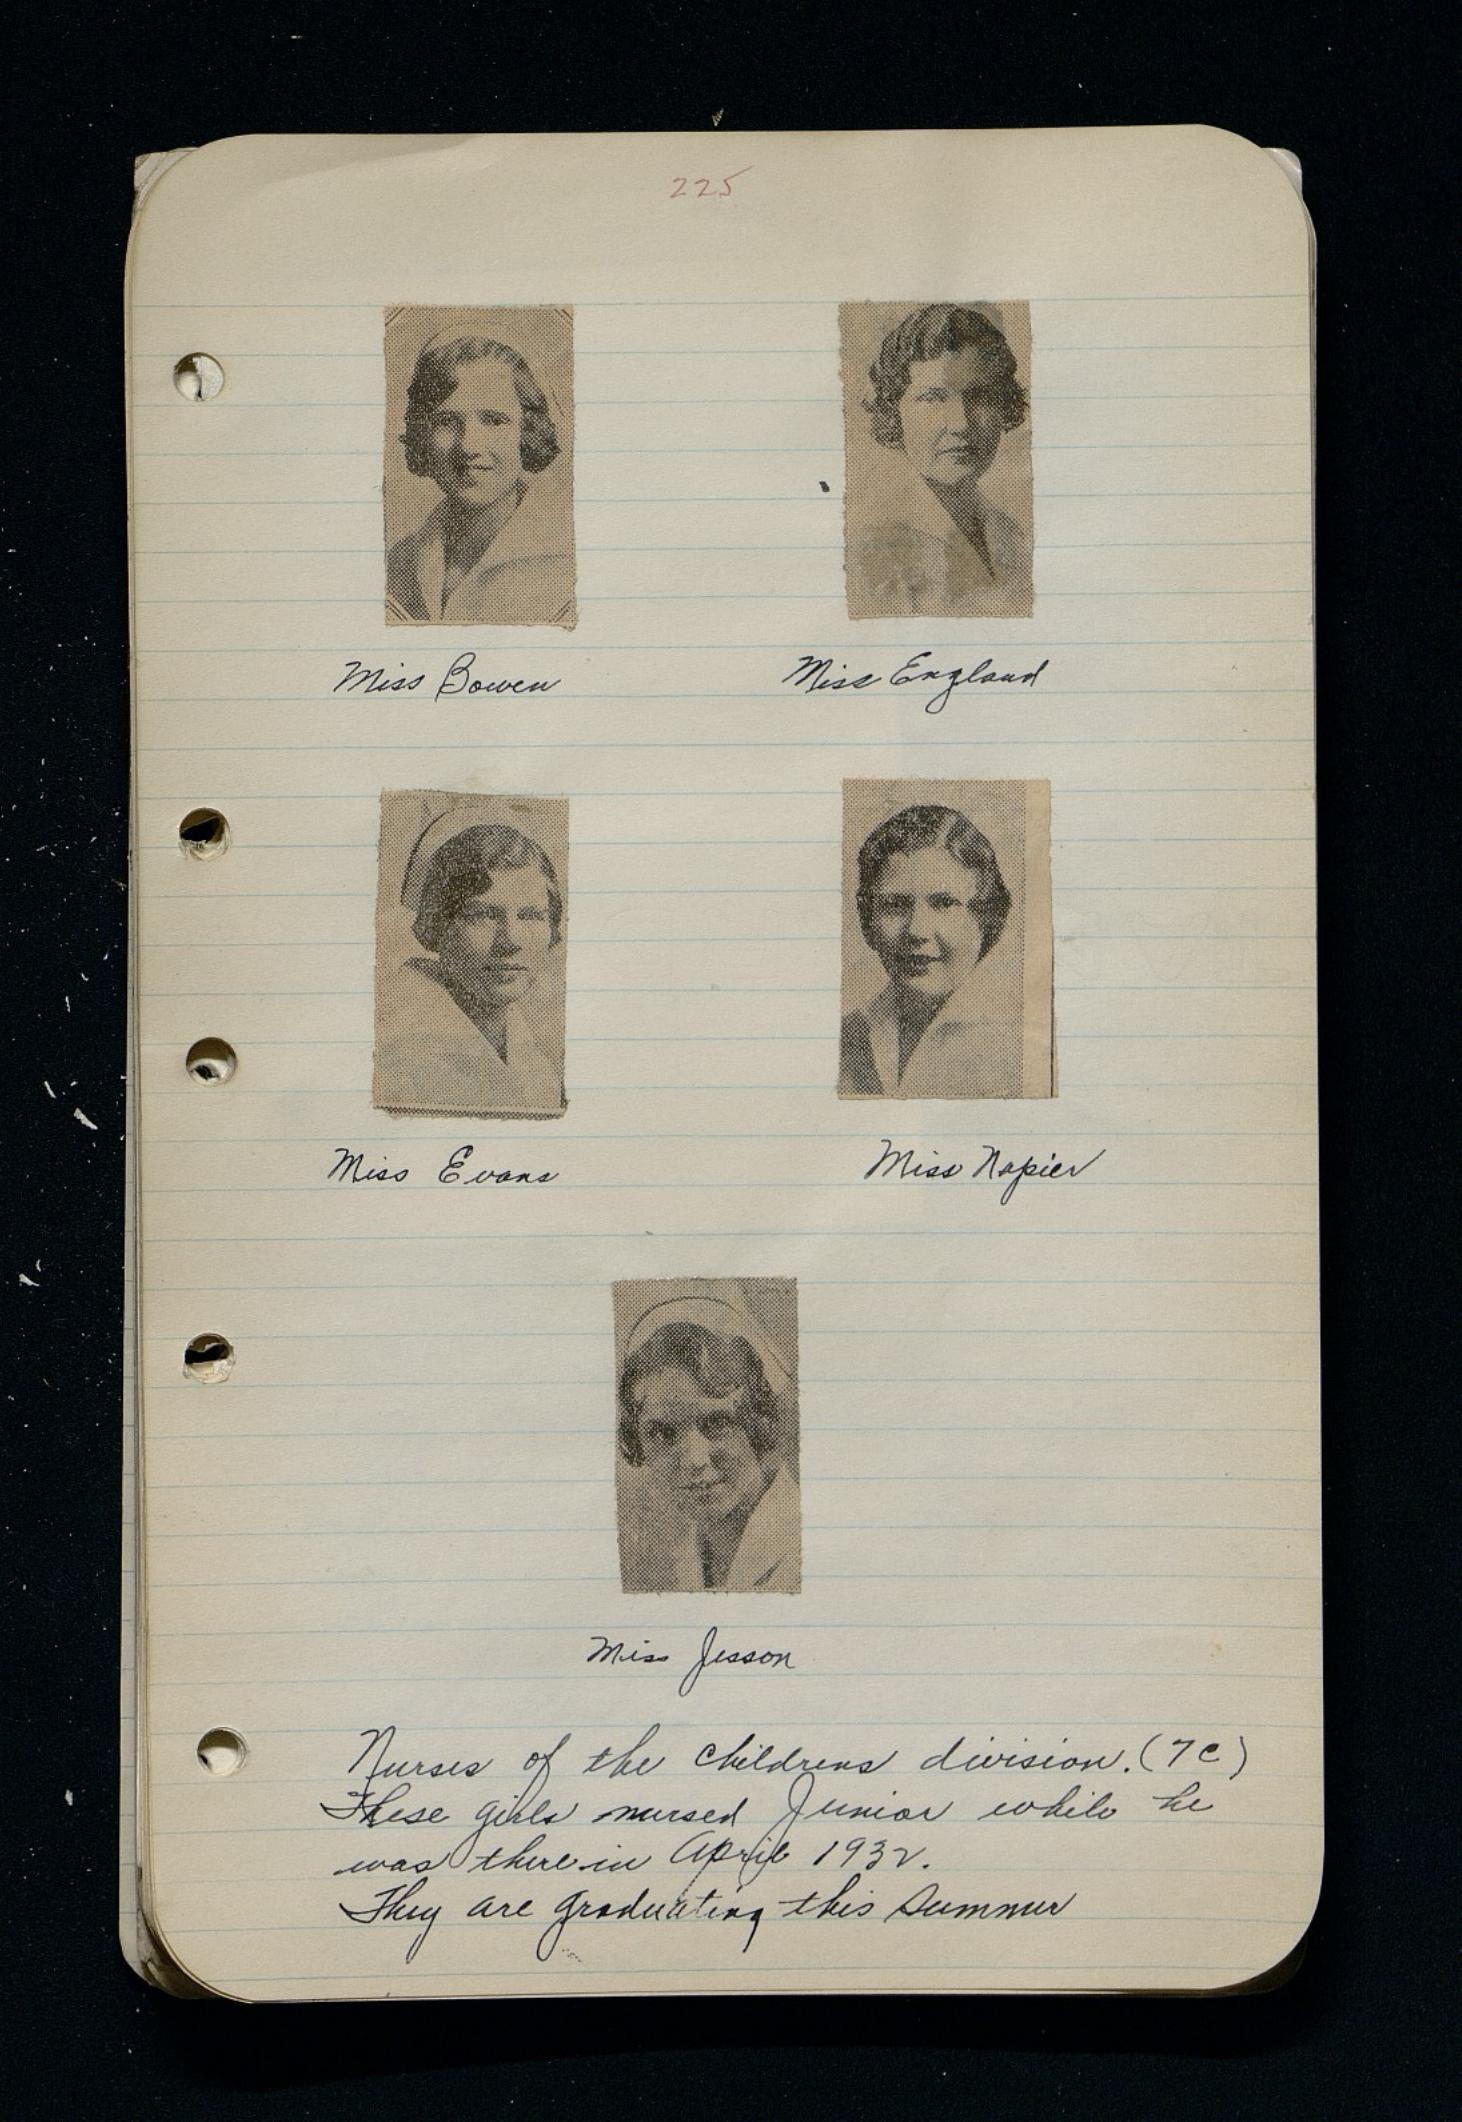 225
Miss Bowen
Miss England
Miss Evans
Miss Napier
Miss Jesson
Nurses of the Childrens division. (7C)
These girls nursed Junior while he
was there in April 1932.
They are graduating this Summer